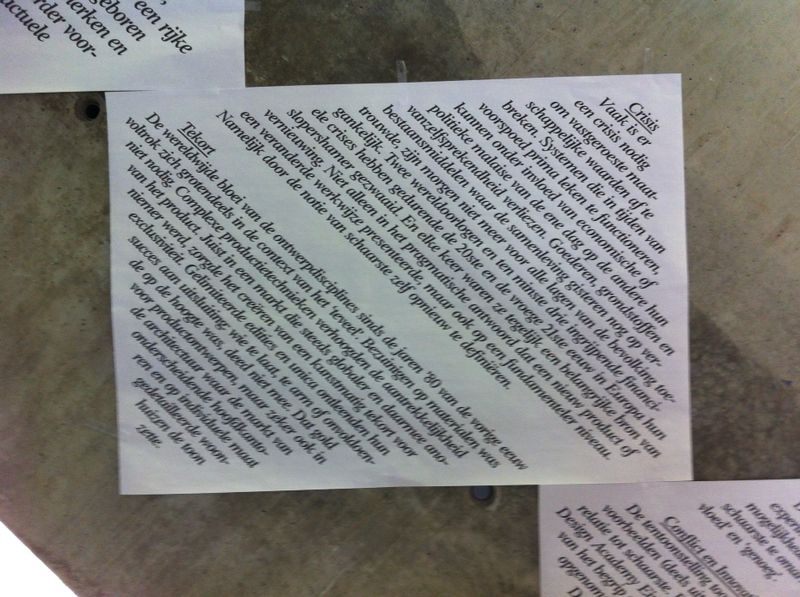 een rijke
geboren
merken en
rder voor-
actuele
Crisis
Vaak is er
een crisis nodig
om vastgeroeste maat-
schappelijke waarden af te
breken. Systemen die in tijden van
voorspoed prima leken te functioneren,
kunnen onder invloed van economische of
politieke malaise van de ene dag op de andere hun
vanzelfsprekendheid verliezen. Goederen, grondstoffen en
bestaansmiddelen waar de samenleving gisteren nog op ver-
trouwde, zijn morgen niet meer voor alle lagen van de bevolking toe-
gankelijk. Twee wereldoorlogen en ten minste drie ingrijpende financi-
ële crises hebben gedurende de 20ste en de vroege 21ste eeuw in Europa hun
slopershamer gezwaaid. En elke keer waren ze tegelijk een belangrijke bron van
vernieuwing. Niet alleen in het pragmatische antwoord dat een nieuw product of
een veranderde werkwijze presenteerde, maar ook op een fundamenteler niveau.
Namelijk door de notie van schaarste zelf opnieuw te definiëren.
Tekort
De wereldwijde bloei van de ontwerpdisciplines sinds de jaren '90 van de vorige eeuw
voltrok zich grotendeels in de context van het 'teveel'. Bezuinigen op materialen was
niet nodig. Complexe productietechnieken verhoogden de aantrekkelijkheid
van het product. Juist in een markt die steeds globaler en daarmee ano-
niemer werd, zorgde het creëren van een kunstmatig tekort voor
exclusiviteit. Gelimiteerde edities en unica ontleenden hun
succes aan uitsluiting: wie te laat, te arm of onvoldoen-
de op de hoogte was, deed niet mee. Dat gold
voor productontwerpen, maar zeker ook in
de architectuur waar de markt van
onderscheidende hoofdkanto-
ren en op individuele maat
gedetailleerde woon-
huizen de toon
zette.
experi
mogelijkhed
schaarste te omar
vloed' en 'genoeg'.
Conflict en Innova
De tentoonstelling too
voorbeelden (deels uit
relatie tot schaarste.
Design Academy Ei
van het begrip
opgenom